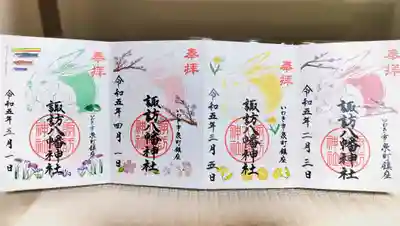 奉拝
いわき市泉町鎮座
諏訪八幡神社
令和五年二月三日
奉拝
いわき市泉町鎮座
諏訪八幡神社
令和五年三月五日
奉拝
いわき市泉町鎮座
諏訪八幡神社
令和五年四月一日
奉拝
いわき市泉町鎮座
諏訪八幡神社
令和五年五月一日